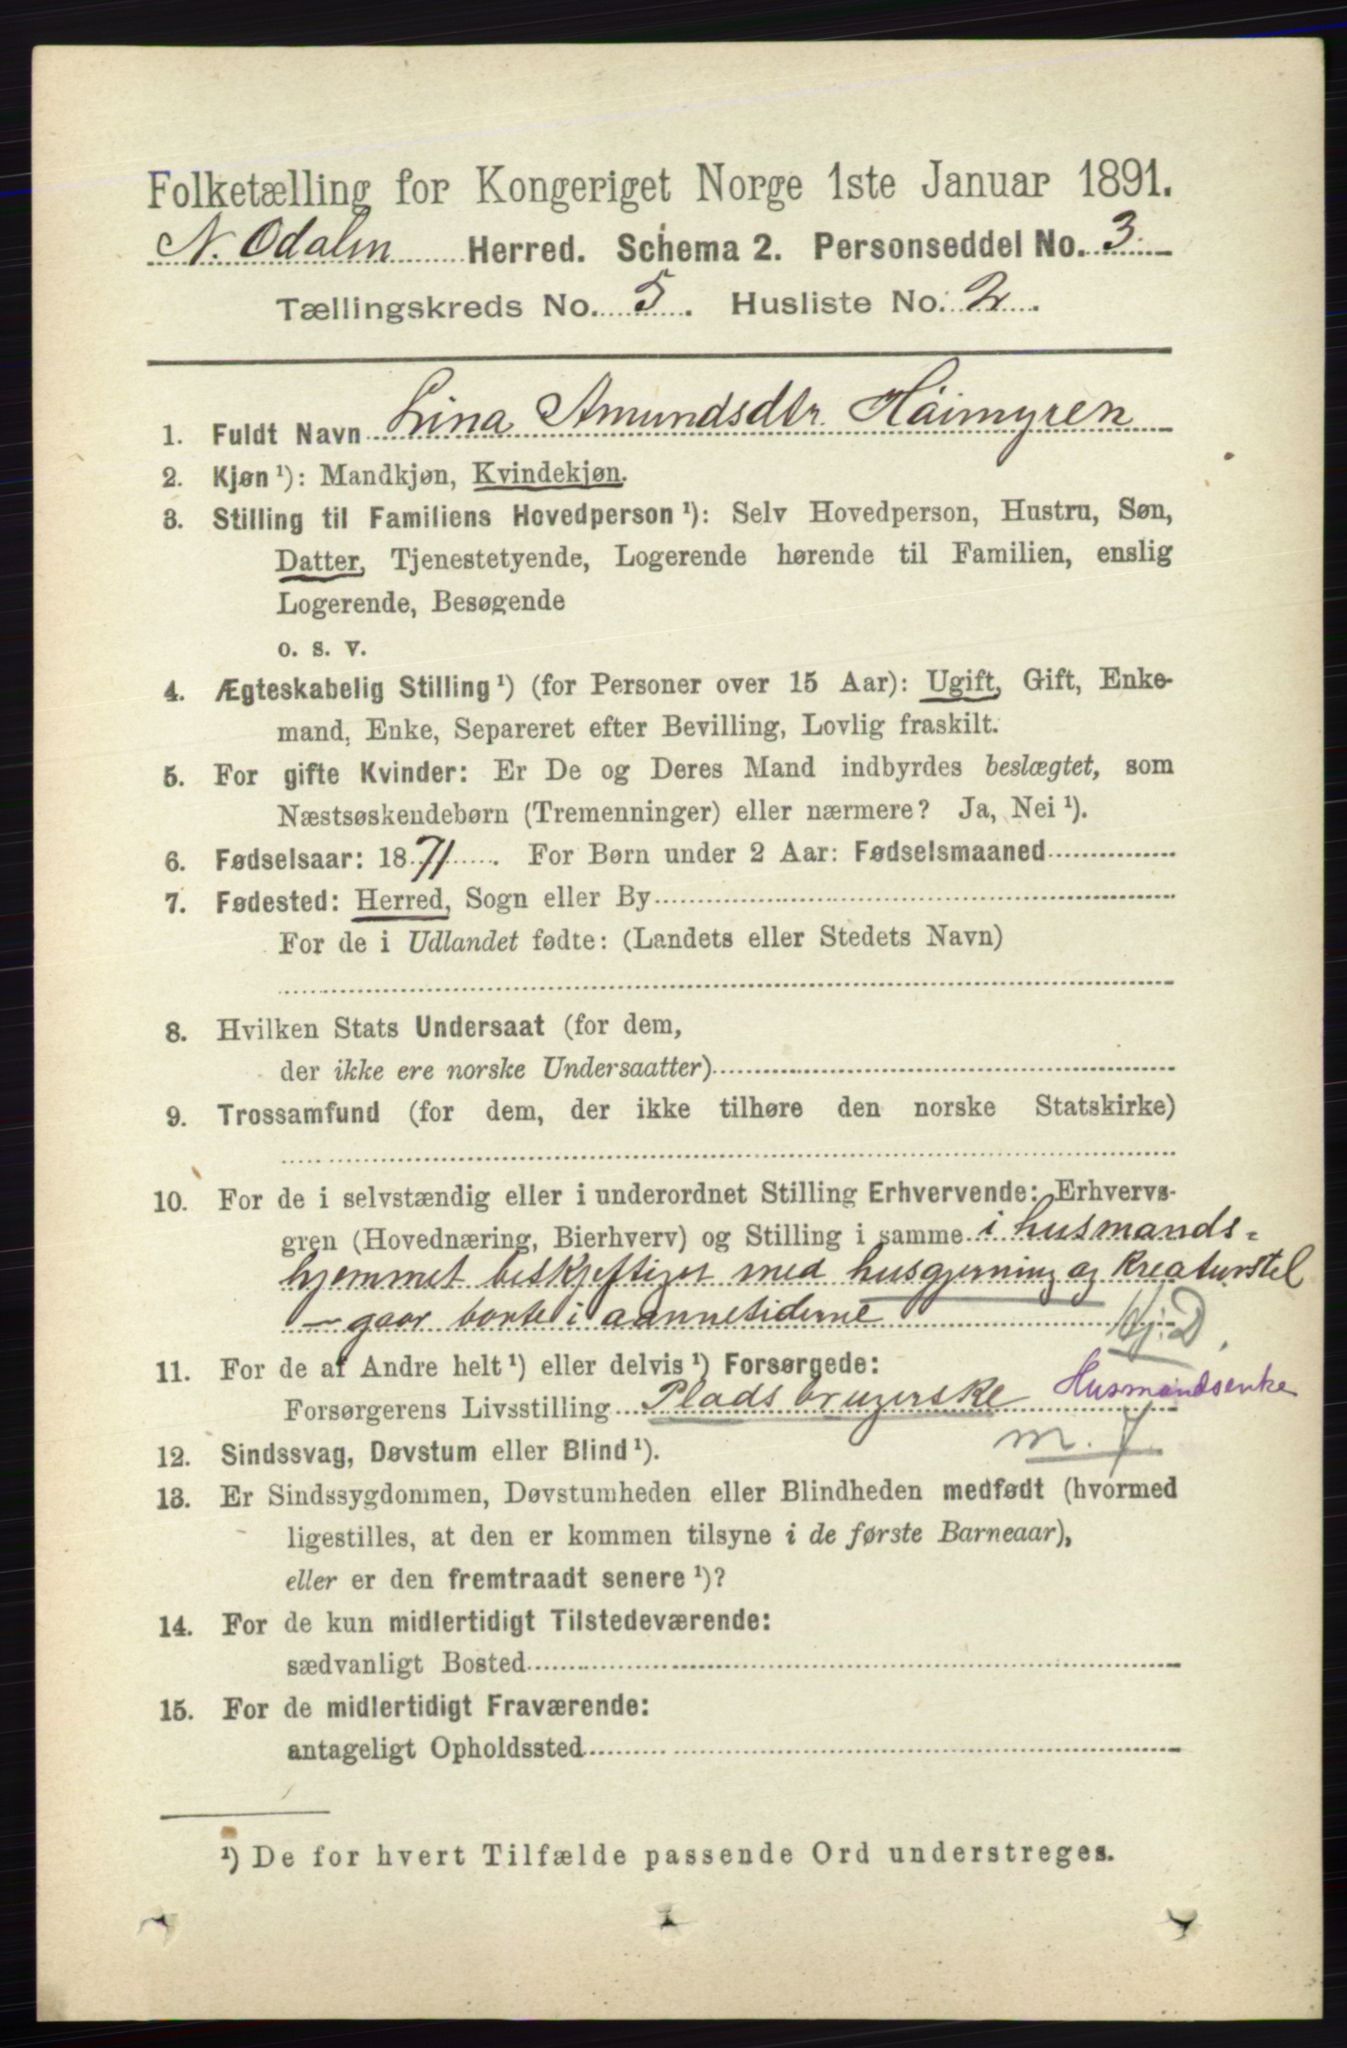 Folketælling for Kongeriget Norge 1ste Januar 1891.
N. Odalen Herred. Schema 2. Personseddel No. 3
Tællingskreds No. 5. Husliste No. 2.
1. Fuldt Navn Lina Amundsdtr. Håimyren
2. Kjøn ¹): Mandkjøn, Kvindekjøn.
3. Stilling til Familiens Hovedperson ¹): Selv Hovedperson, Hustru, Søn,
Datter, Tjenestetyende, Logerende hørende til Familien, enslig
Logerende, Besøgende
o. s. v.
4. Ægteskabelig Stilling ¹) (for Personer over 15 Aar): Ugift, Gift, Enke-
mand, Enke, Separeret efter Bevilling, Lovlig fraskilt.
5. For gifte Kvinder: Er De og Deres Mand indbyrdes beslægtet, som
Næstsøskendebørn (Tremenninger) eller nærmere? Ja, Nei ¹).
6. Fødselsaar: 1871. For Børn under 2 Aar: Fødselsmaaned
7. Fødested: Herred, Sogn eller By
For de i Udlandet fødte: (Landets eller Stedets Navn)
8. Hvilken Stats Undersaat (for dem,
der ikke ere norske Undersaatter)
9. Trossamfund (for dem, der ikke tilhøre den norske Statskirke)
10. For de i selvstændig eller i underordnet Stilling Erhvervende: Erhvervs-
gren (Hovednæring, Bierhverv) og Stilling i samme i husmands-
hjemmet beskjeftiget med husgjerning og kreaturstel
- gaar borte i aannetiderne Hj. D.
11. For de af Andre helt ¹) eller delvis ¹) Forsørgede:
Forsørgerens Livsstilling Pladsbrugerske Husmandsenke
12. Sindssvag, Døvstum eller Blind ¹). m. 7
13. Er Sindssygdommen, Døvstumheden eller Blindheden medfødt (hvormed
ligestilles, at den er kommen tilsyne i de første Barneaar),
eller er den fremtraadt senere ¹)?
14. For de kun midlertidigt Tilstedeværende:
sædvanligt Bosted
15. For de midlertidigt Fraværende:
antageligt Opholdssted
¹) De for hvert Tilfælde passende Ord understreges.